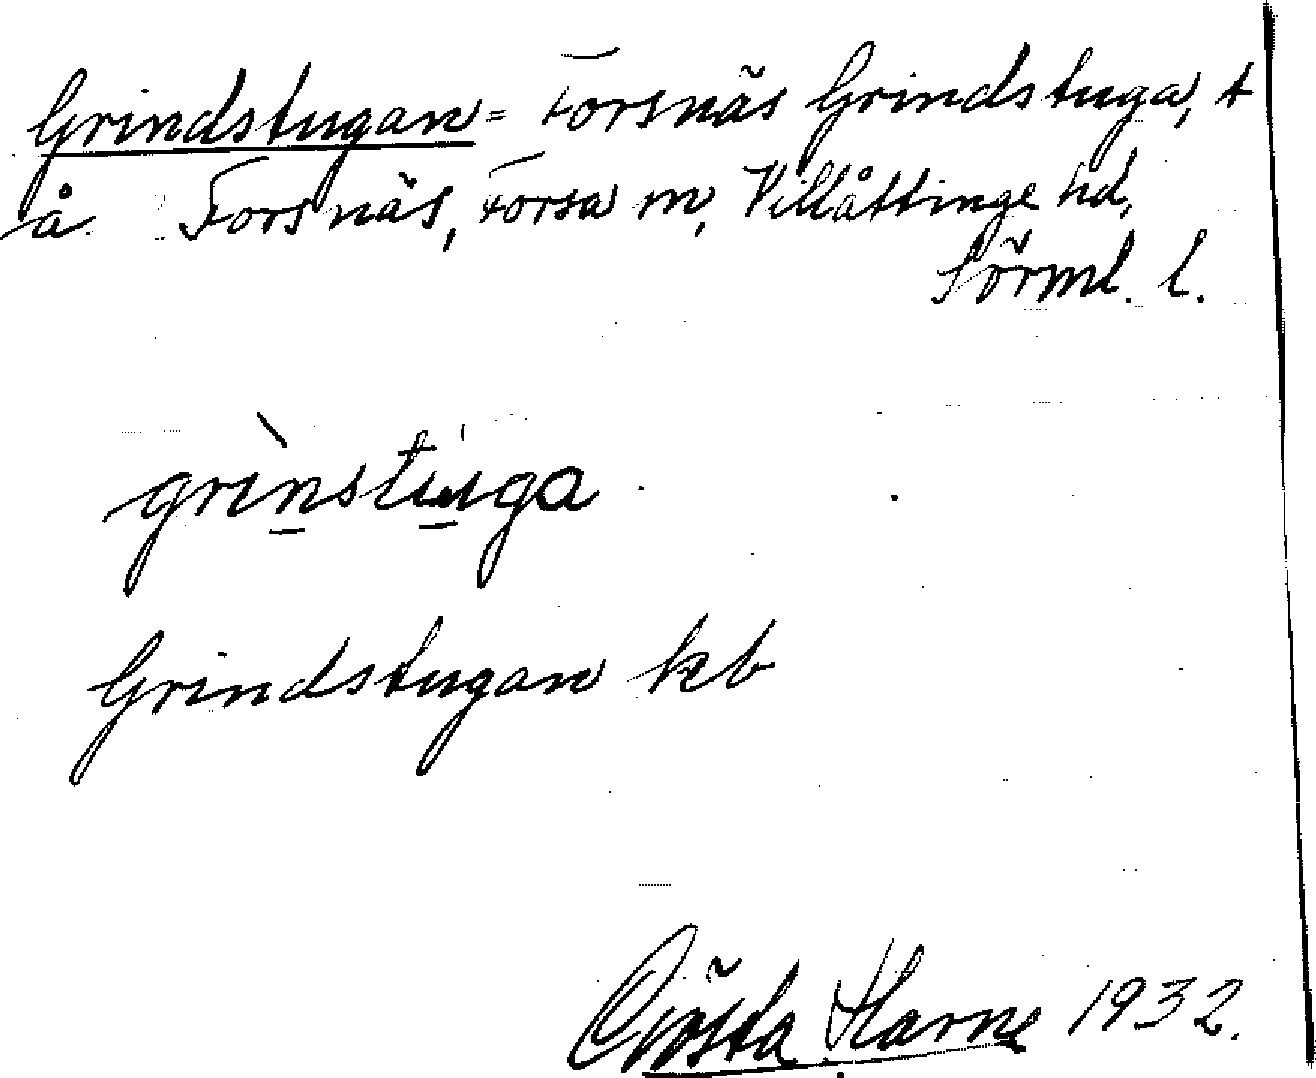 Grindstugan = Forsnäs Grindstuga, t
å Forsnäs, Forsa sn, Villåttinge hd,
Sörml. l.
grìnstuga
Grindstugan kb
Gösta Harne 1932.